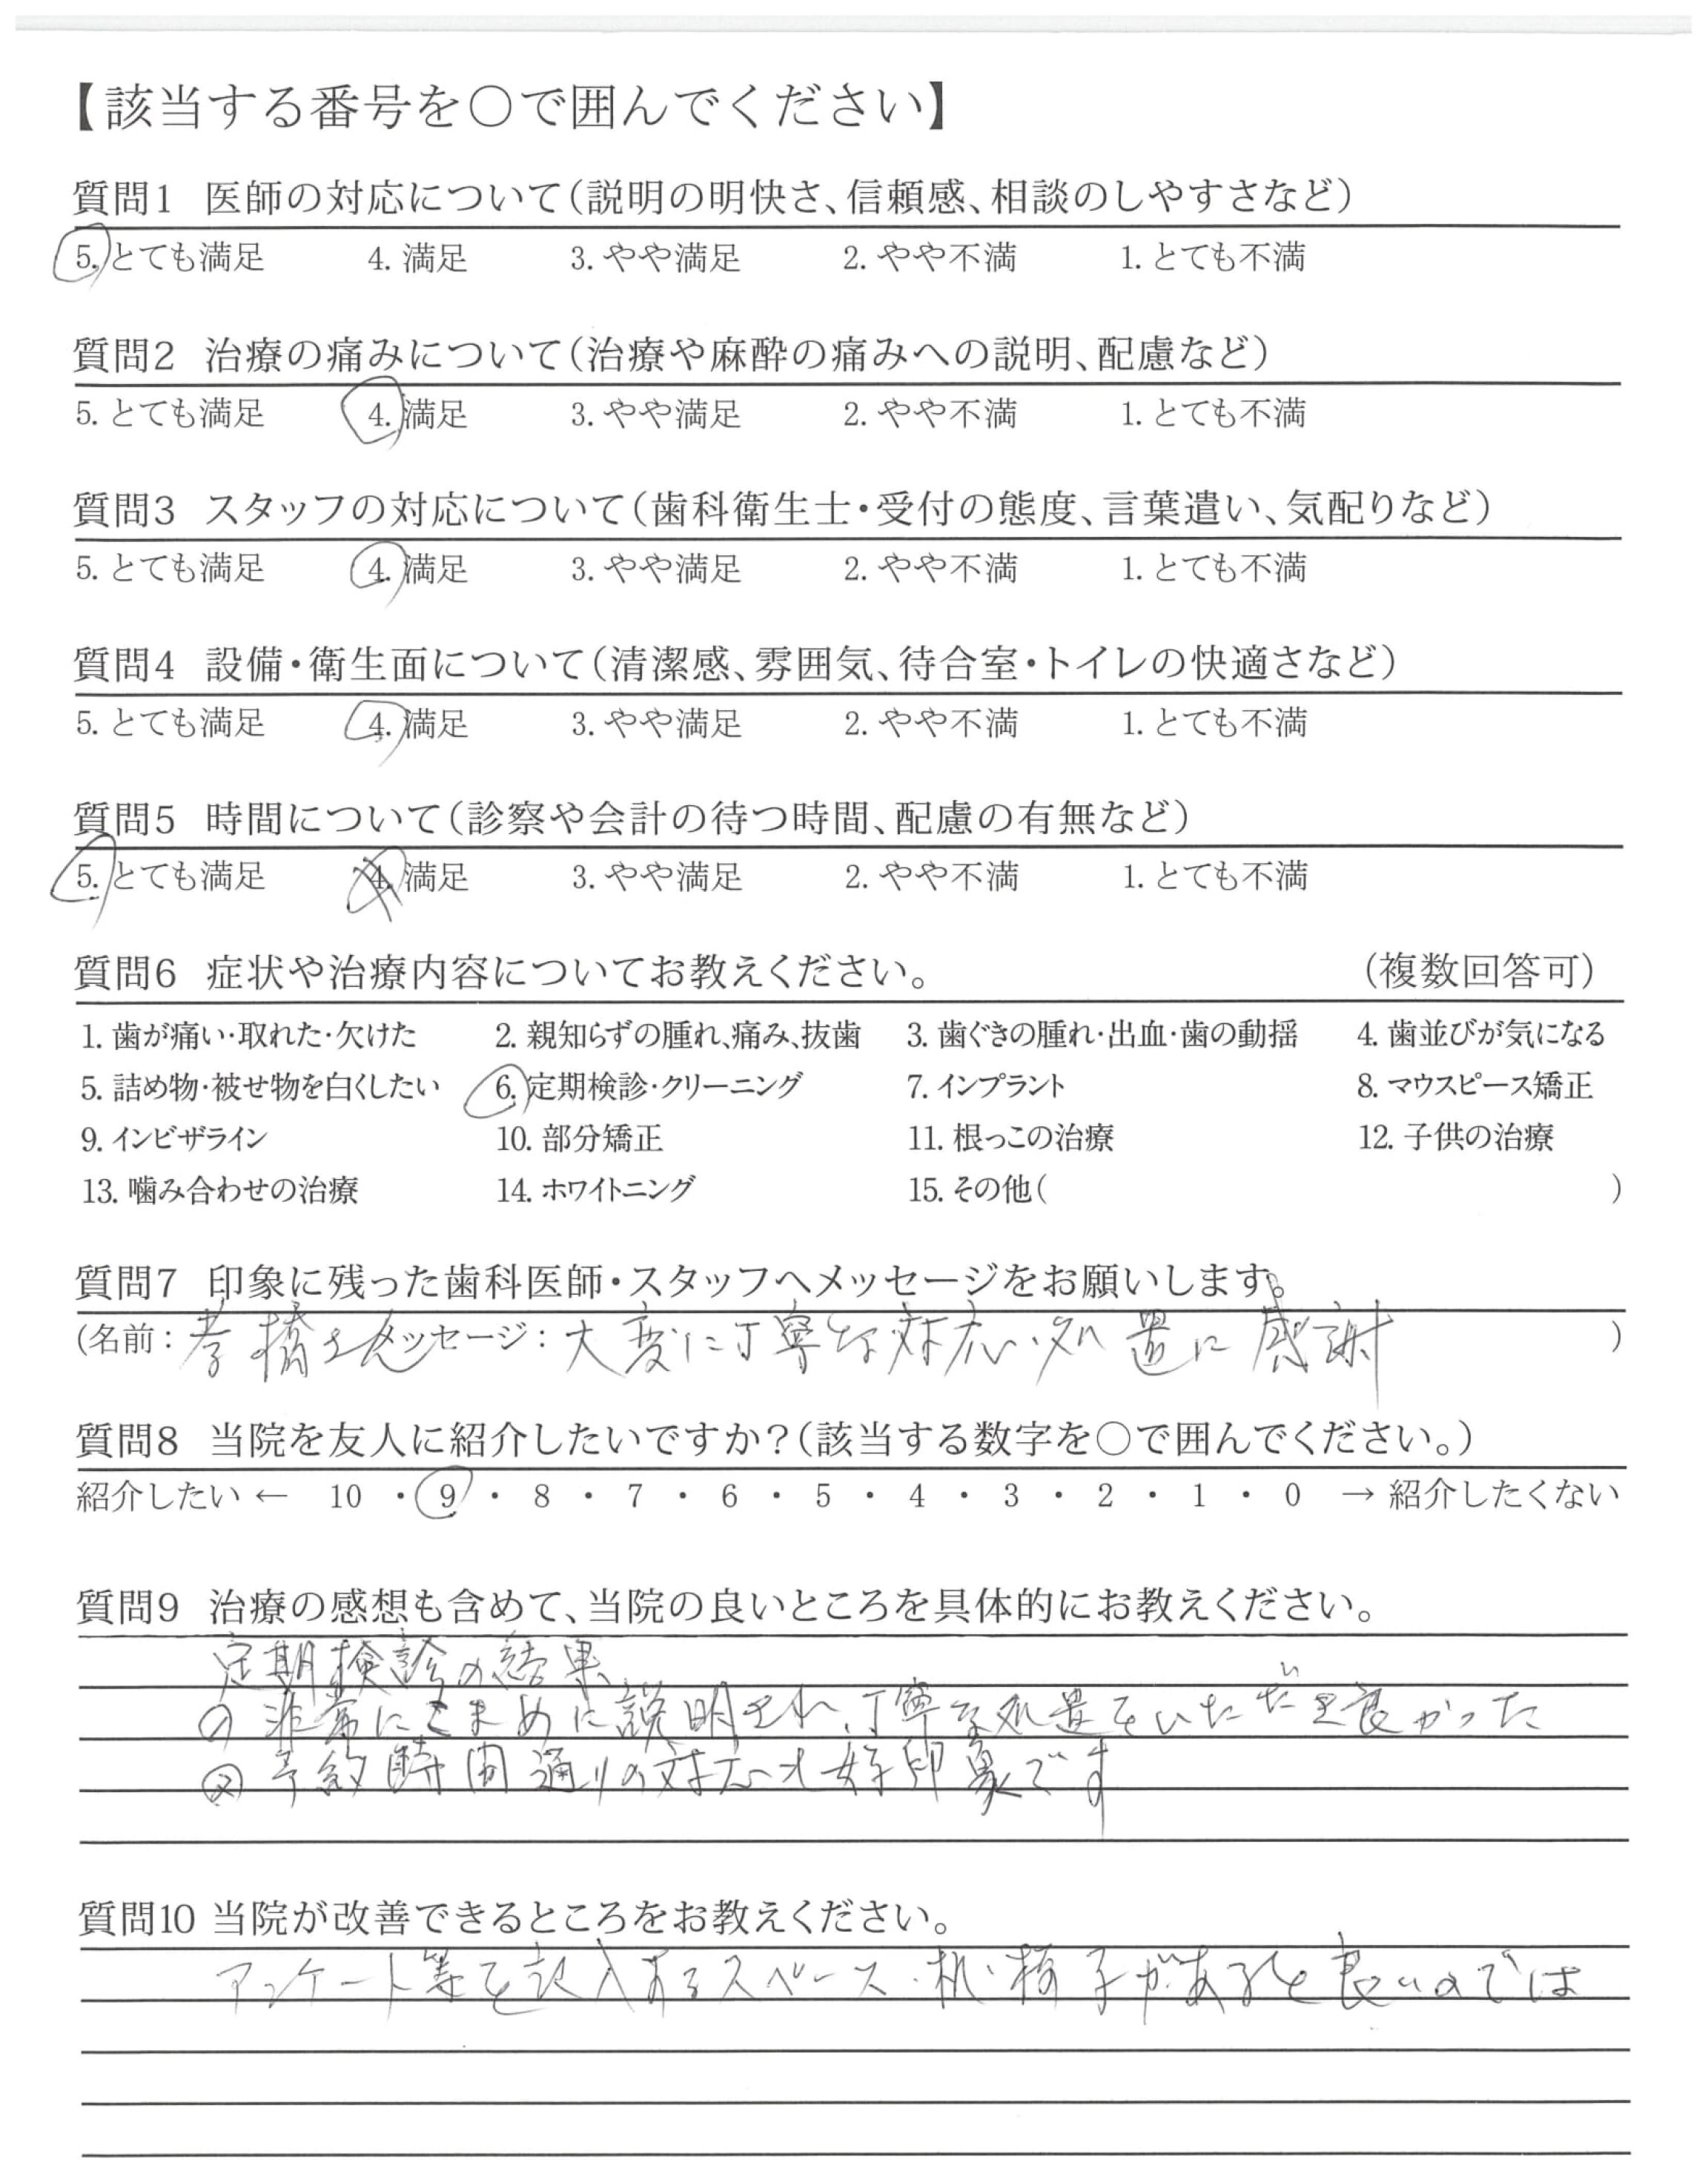 【該当する番号を○で囲んでください】
質問1 医師の対応について(説明の明快さ、信頼感、相談のしやすさなど)
5. とても満足 4. 満足 3. やや満足 2. やや不満 1. とても不満
質問2 治療の痛みについて(治療や麻酔の痛みへの説明、配慮など)
5. とても満足 4. 満足 3. やや満足 2. やや不満 1. とても不満
質問3 スタッフの対応について(歯科衛生士・受付の態度、言葉遣い、気配りなど)
5. とても満足 4. 満足 3. やや満足 2. やや不満 1. とても不満
質問4 設備・衛生面について(清潔感、雰囲気、待合室・トイレの快適さなど)
5. とても満足 4. 満足 3. やや満足 2. やや不満 1. とても不満
質問5 時間について(診察や会計の待つ時間、配慮の有無など)
5. とても満足 4. 満足 3. やや満足 2. やや不満 1. とても不満
質問6 症状や治療内容についてお教えください。 (複数回答可)
1. 歯が痛い・取れた・欠けた 2. 親知らずの腫れ、痛み、抜歯 3. 歯ぐきの腫れ・出血・歯の動揺 4. 歯並びが気になる
5. 詰め物・被せ物を白くしたい 6. 定期検診・クリーニング 7. インプラント 8. マウスピース矯正
9. インビザライン 10. 部分矯正 11. 根っこの治療 12. 子供の治療
13. 噛み合わせの治療 14. ホワイトニング 15. その他( )
質問7 印象に残った歯科医師・スタッフへメッセージをお願いします。
(名前: さん メッセージ: 大変に丁寧な対応・処置に感謝 )
質問8 当院を友人に紹介したいですか?(該当する数字を○で囲んでください。)
紹介したい ← 10 ・ 9 ・ 8 ・ 7 ・ 6 ・ 5 ・ 4 ・ 3 ・ 2 ・ 1 ・ 0 → 紹介したくない
質問9 治療の感想も含めて、当院の良いところを具体的にお教えください。
定期検診の結果
① 非常にこまめに説明され、丁寧な処置をいただき良かった
② 予約時間通りの対応も好印象です
質問10 当院が改善できるところをお教えください。
アンケート等を記入するスペース・机・椅子があると良いのでは